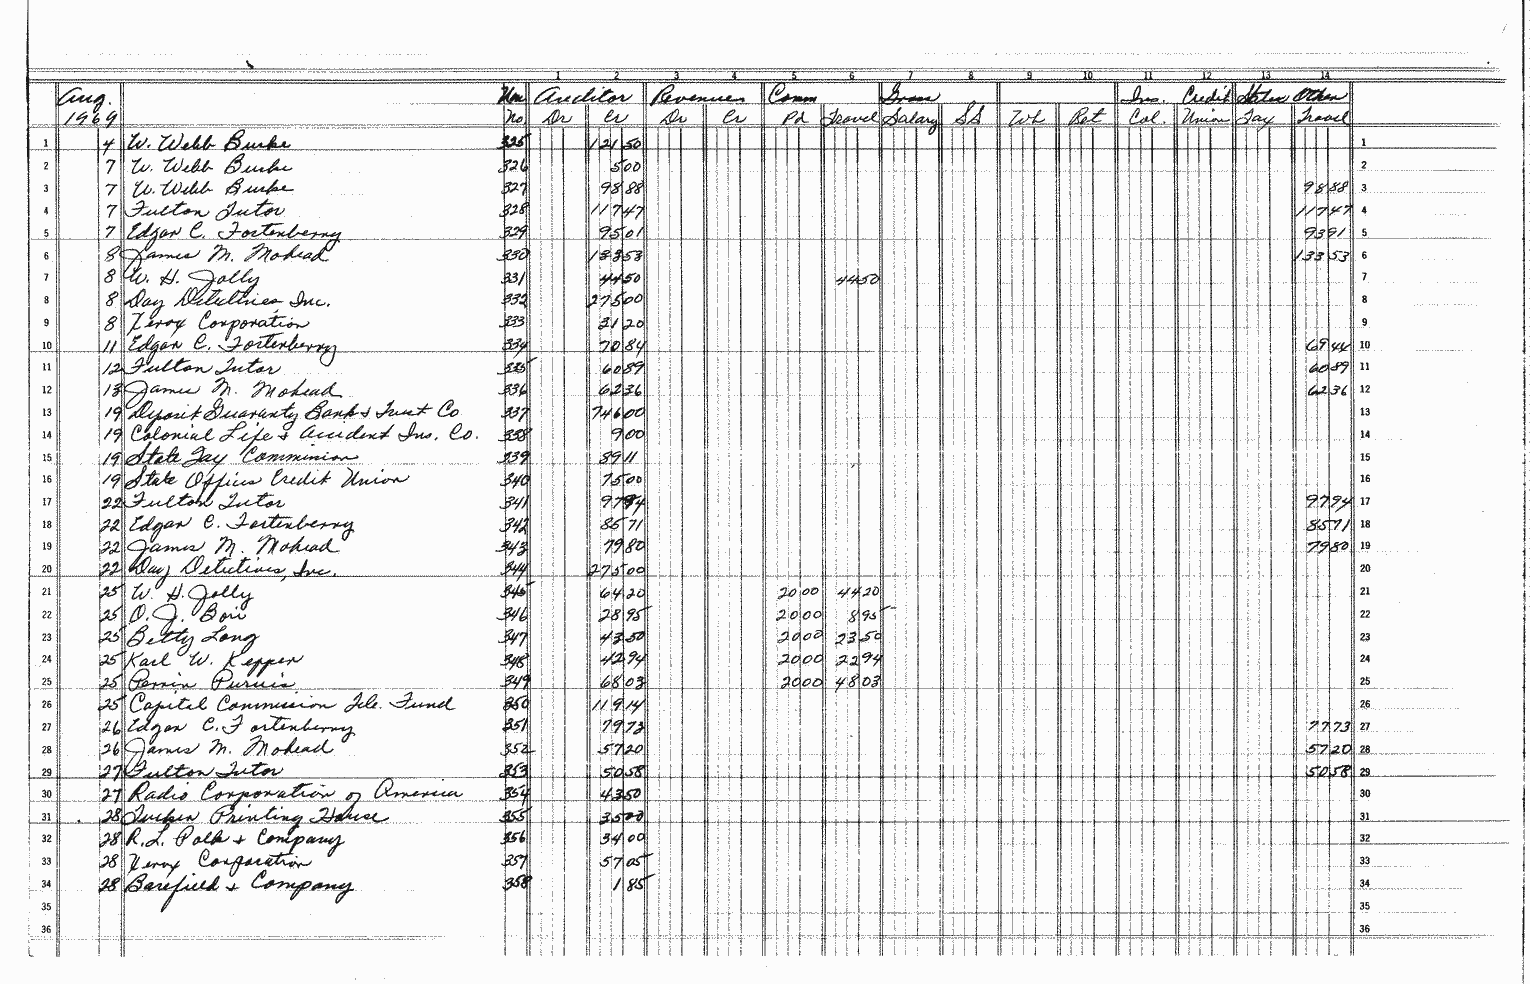 1 2 3 4 5 6 7 8 9 10 11 12 13 14
Aug. Auditor Revenues Comm Gross Ins. Credit State Other
1969 No. Dr Cr Dr Cr Pd Travel Salary SS Wh Ret Col. Union Tax Travel
1 4 W. Webb Burke 325 121 50 1
2 7 W. Webb Burke 326 5 00 2
3 7 W. Webb Burke 327 98 88 98 88 3
4 7 Fulton Tutor 328 117 47 117 47 4
5 7 Edgar C. Fortenberry 329 95 01 93 91 5
6 8 James M. Mohead 330 133 53 133 53 6
7 8 W. H. Jolly 331 44 50 44 50 7
8 8 Day Detectives, Inc. 332 275 00 8
9 8 Xerox Corporation 333 31 20 9
10 11 Edgar C. Fortenberry 334 70 84 69 44 10
11 12 Fulton Tutor 335 60 89 60 89 11
12 13 James M. Mohead 336 62 36 62 36 12
13 19 Deposit Guaranty Bank & Trust Co 337 746 00 13
14 19 Colonial Life & Accident Ins. Co. 338 9 00 14
15 19 State Tax Commission 339 89 11 15
16 19 State Offices Credit Union 340 75 00 16
17 22 Fulton Tutor 341 97 94 97 94 17
18 22 Edgar C. Fortenberry 342 85 71 85 71 18
19 22 James M. Mohead 343 79 80 79 80 19
20 22 Day Detectives, Inc. 344 275 00 20
21 25 W. H. Jolly 345 64 20 20 00 44 20 21
22 25 O. J. 346 28 95 20 00 8 95 22
23 25 Betty Long 347 43 50 20 00 23 50 23
24 25 Karl W. Kepper 348 42 94 20 00 22 94 24
25 25 Perrin Purvis 349 68 03 20 00 48 03 25
26 25 Capitol Commission Tele. Fund 350 119 14 26
27 26 Edgar C. Fortenberry 351 79 73 77 73 27
28 26 James M. Mohead 352 57 20 57 20 28
29 27 Fulton Tutor 353 50 58 50 58 29
30 27 Radio Corporation of America 354 43 50 30
31 28 Tucker Printing House 355 35 00 31
32 28 R. L. Polk & Company 356 34 00 32
33 28 Xerox Corporation 357 57 05 33
34 28 Barefield & Company 358 1 85 34
35 35
36 36